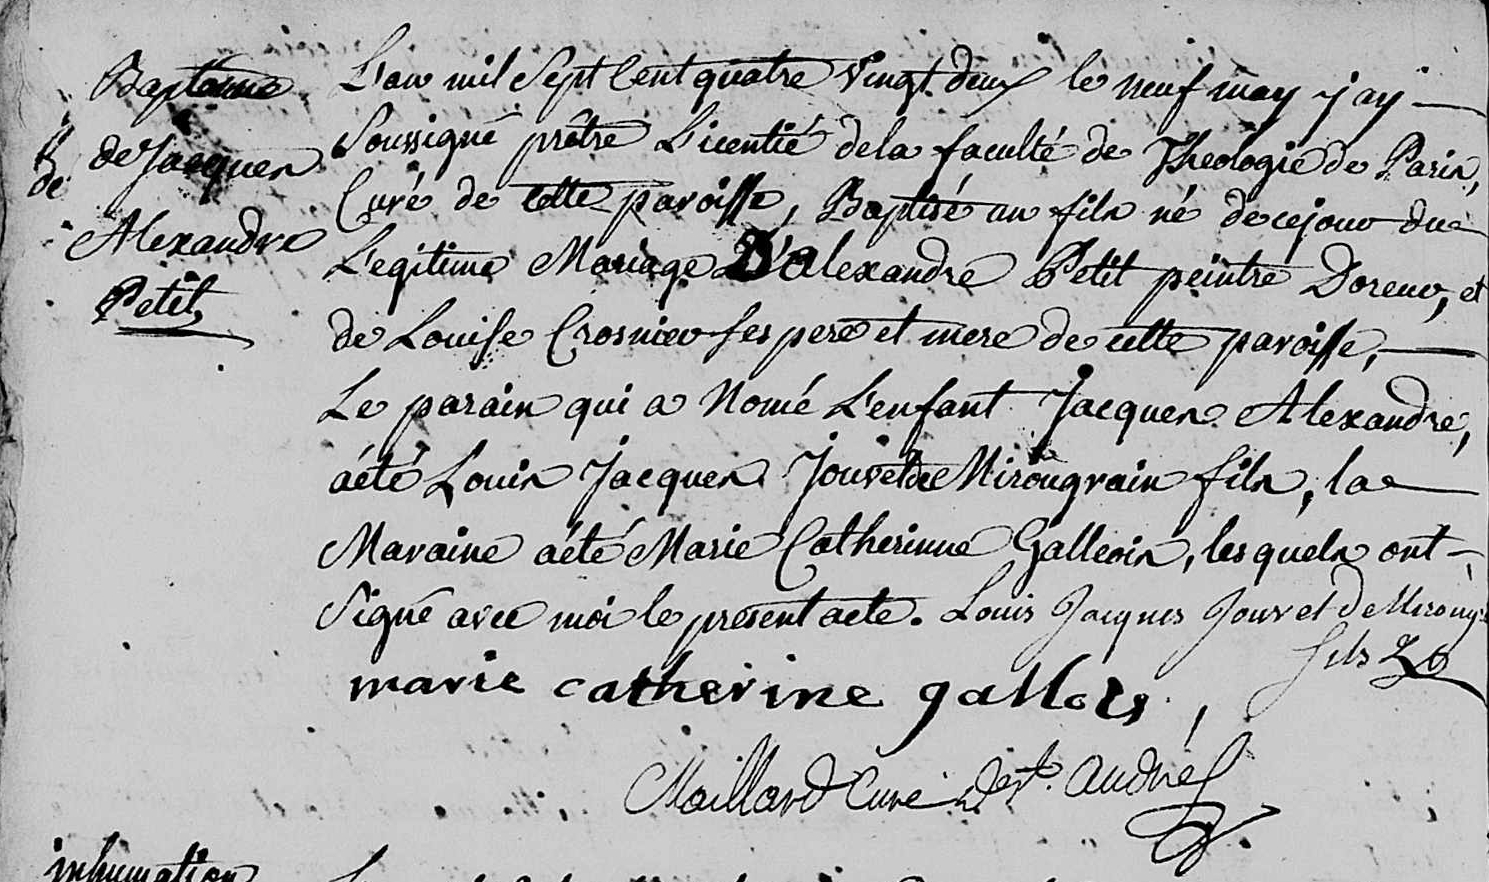 Baptême
de Jacques
Alexandre
Petit
L'an mil Sept Cent quatre Vingt. deux le neuf may j'ay
Soussigné prêtre Licentié dela faculté de Theologie de Paris,
Curé de cette paroisse, Baptisé un fils né de cejour du
Legitime Mariage D'alexandre Petit peintre Doreur, et
de Louise Crosnier ses pere et mere de cette paroisse,
Le parain qui a Nomé L'enfant Jacques Alexandre,
aété Louis Jacques Jouvet de Mirougrain fils, la
Maraine aété Marie Catherinne Galleois, lesquels ont
Signé avec moi le présent acte. Louis Jacques Jouvet de Miroug
fils
marie catherine gallois,
Maillard Curé de st. André
inhumation